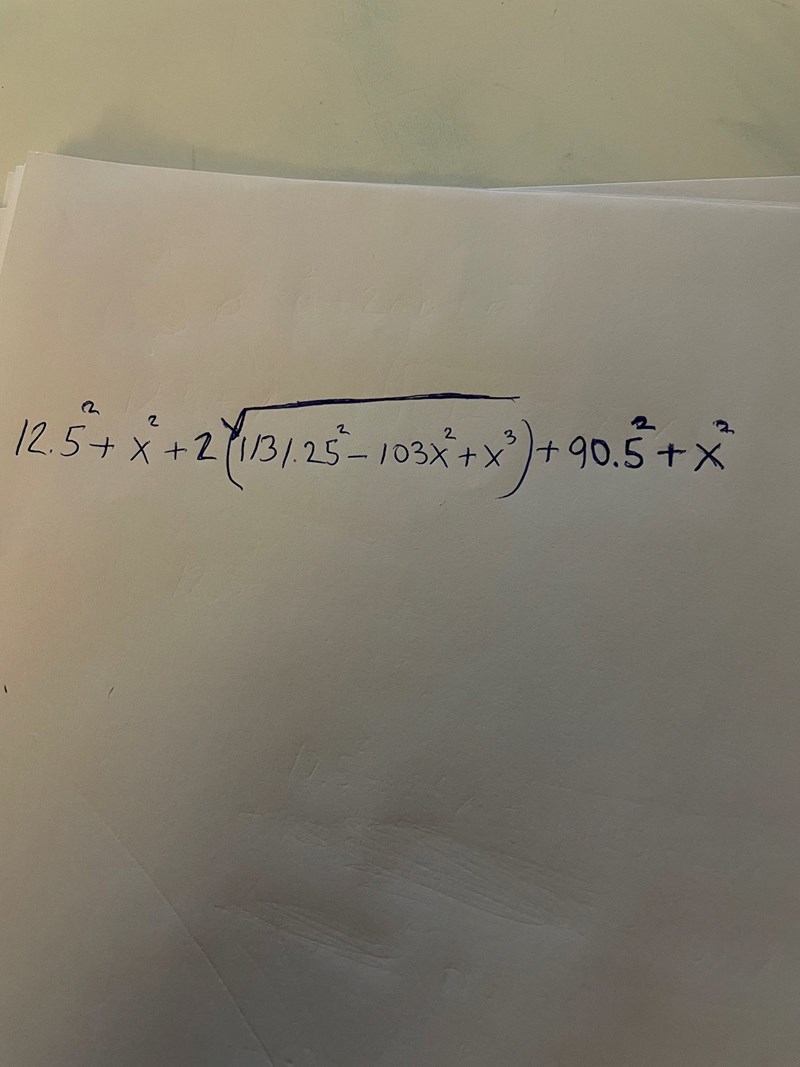 12.5² + x² + 2(√1131.25² - 103x² + x³) + 90.5² + x²